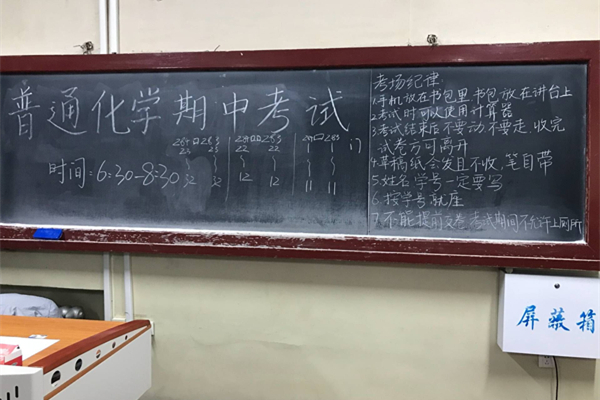 普通化学期中考试
时间:6:30-8:30
22
22
22
32
32
12
12
11
11
门
考场纪律
1.手机放在书包里 书包放在讲台上
2.考试时可以使用计算器
3.考试结束后不要动,不要走.收完
试卷方可离开
4.草稿纸会发且不收,笔自带
5.姓名学号一定要写
6.按学号就座
7.不能提前交卷 考试期间不允许上厕所
屏蔽箱